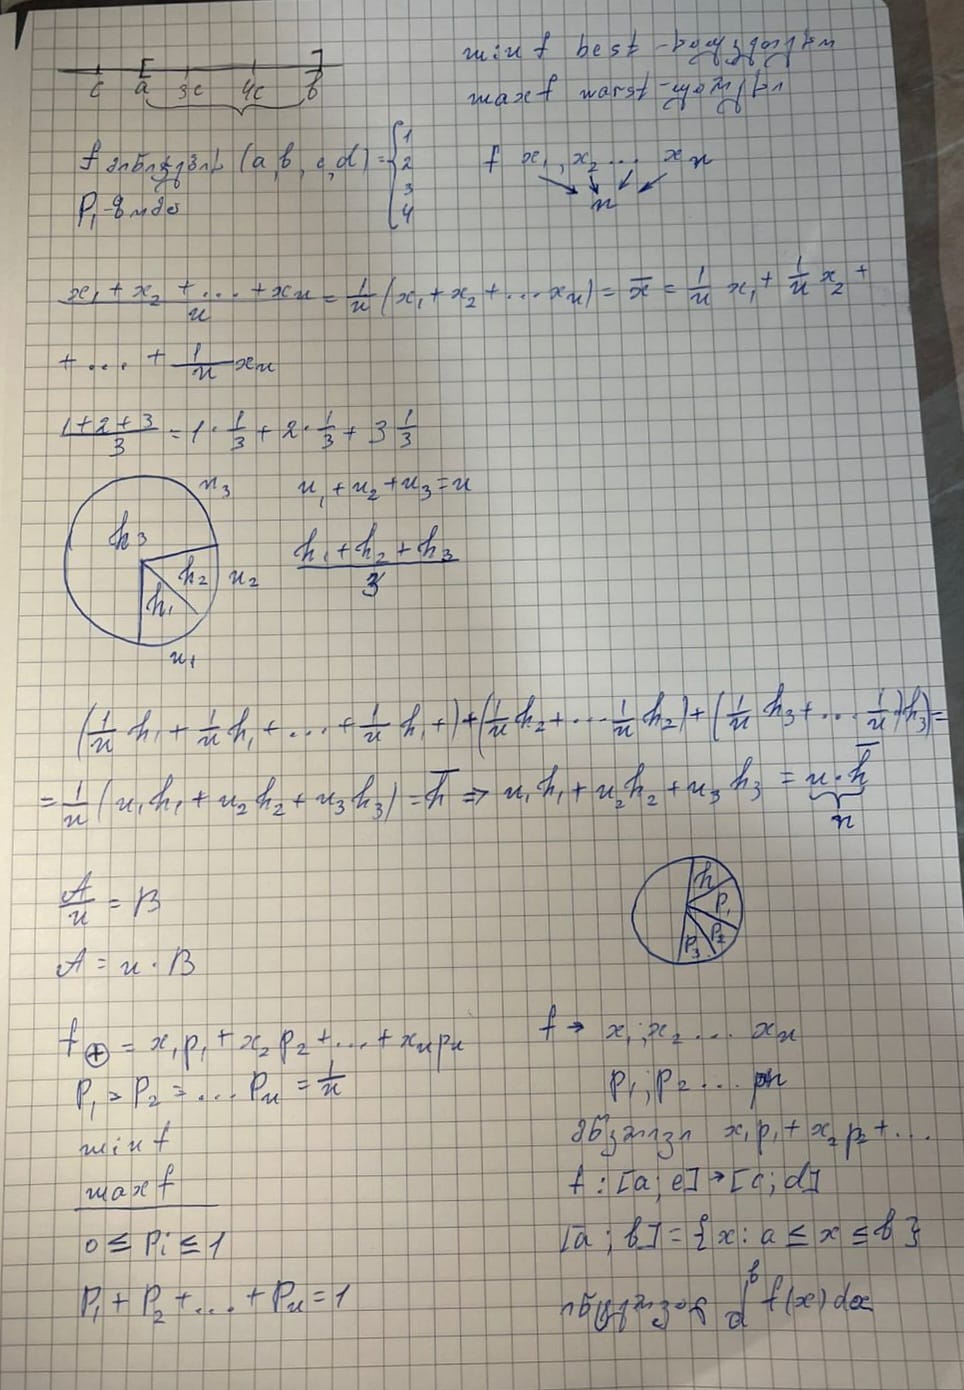 min f best -
max f worst -
c a 3c 4c b
f (a, b, c, d) = { 1 2 3 4
f x₁, x₂ ... xₙ
n
P₁ -
(x₁ + x₂ + ... + xₙ)/n = 1/n (x₁ + x₂ + ... xₙ) = x̄ = 1/n x₁ + 1/n x₂ +
+ ... + 1/n xₙ
(1+2+3)/3 = 1 · 1/3 + 2 · 1/3 + 3 1/3
n₃ n₁ + n₂ + n₃ = n
h₃ h₂ n₂ (h₁ + h₂ + h₃)/3
h₁
n₁
(1/n h₁ + 1/n h₁ + ... + 1/n h₁ +) + (1/n h₂ + ... 1/n h₂) + (1/n h₃ + ... 1/n h₃) =
= 1/n (n₁h₁ + n₂h₂ + n₃h₃) = h̄ ⇒ n₁h₁ + n₂h₂ + n₃h₃ = n · h̄
n
h P₁ P₂ P₃
A/n = B
A = n · B
f ⊕ = x₁p₁ + x₂p₂ + ... + xₙpₙ
P₁ = P₂ = ... Pₙ = 1/n
min f
max f
0 ≤ Pi ≤ 1
P₁ + P₂ + ... + Pₙ = 1
f → x₁; x₂ ... xₙ
p₁; p₂ ... pn
x₁p₁ + x₂p₂ + ...
f : [a; e] → [c; d]
[a ; b] = {x : a ≤ x ≤ b}
f(x) dx